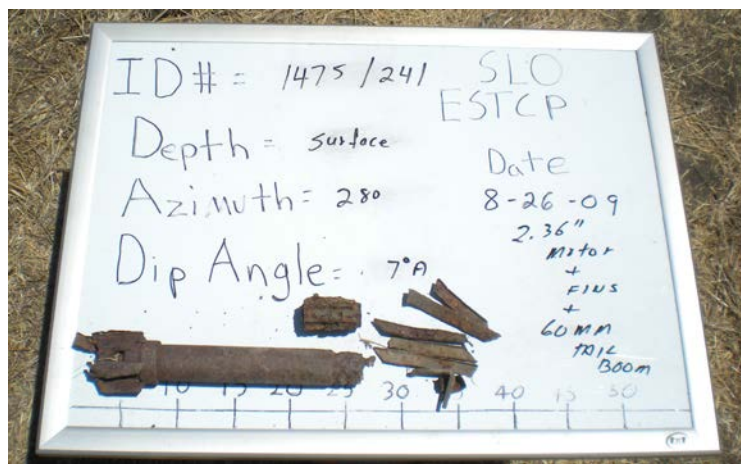 ID# = 1475/241
Depth = surface
Azimuth = 280
Dip Angle = 7°A
SLO
ESTCP
Date
8-26-09
2.36"
Motor
+
FINS
+
60MM
TAIL
BOOM
10 15 20 25 30 40 45 50